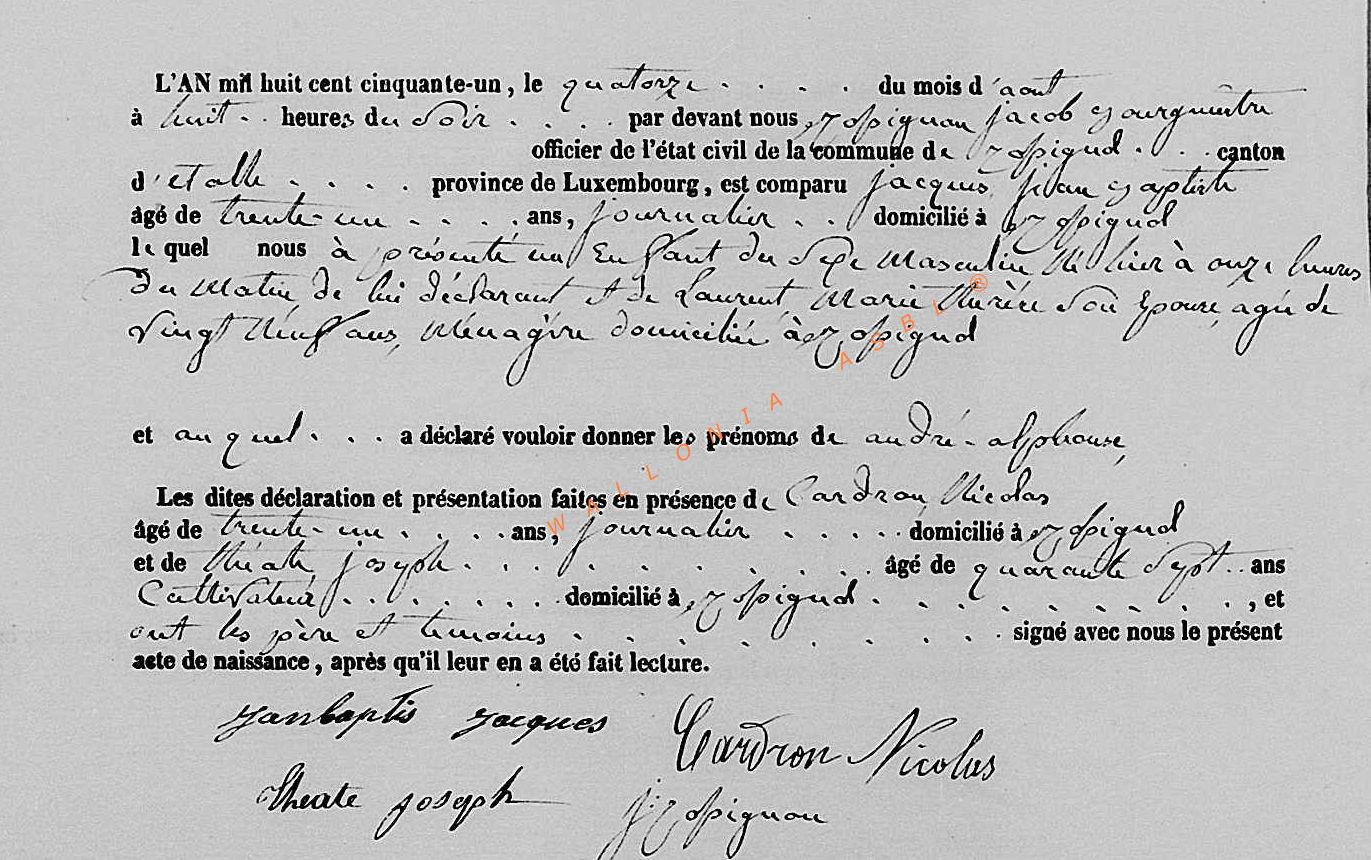 L'AN mil huit cent cinquante-un, le quatorze . . . . du mois d'aout
à huit . . heures du Soir . . . . par devant nous, Rossignon jacob Bourgmestre
officier de l'état civil de la commune de Rossignol . . . canton
d'Etalle . . . . province de Luxembourg, est comparu jacques, jean Baptiste
âgé de trente-un . . . . ans, journalier . . domicilié à Rossignol
le quel nous à présenté un Enfant du Sexe Masculin Né hier à onze heures
du Matin de lui déclarant et de Laurent, Marie Son Epouse, agée de
vingt Neuf ans, Ménagère domiciliée à Rossignol
et auquel . . . a déclaré vouloir donner les prénoms de andré-alphonse,
Les dites déclaration et présentation faites en présence de Cardron, Nicolas
âgé de trente-un . . . . ans, journalier . . . . . domicilié à Rossignol
et de théate, joseph . . . . . . . . . âgé de quarante Sept . . ans
Cultivateur . . . . . . . domicilié à, Rossignol . . . . . . . . . , et
ont les père et temoins . . . . . . . . signé avec nous le présent
acte de naissance, après qu'il leur en a été fait lecture.
Janbaptis Jacques
Cardron Nicolas
theate joseph
j: Rossignon
WALLONIA ASBL ®